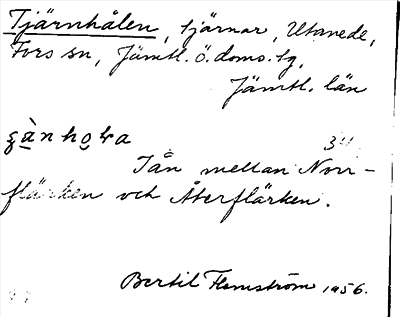 Tjärnhålen, tjärnar, Utanede,
Fors sn, Jämtl. ö. doms. tg,
Jämtl. län
34
Två mellan Norr-
flärken och Återflärken.
Bertil Flemström 1956.